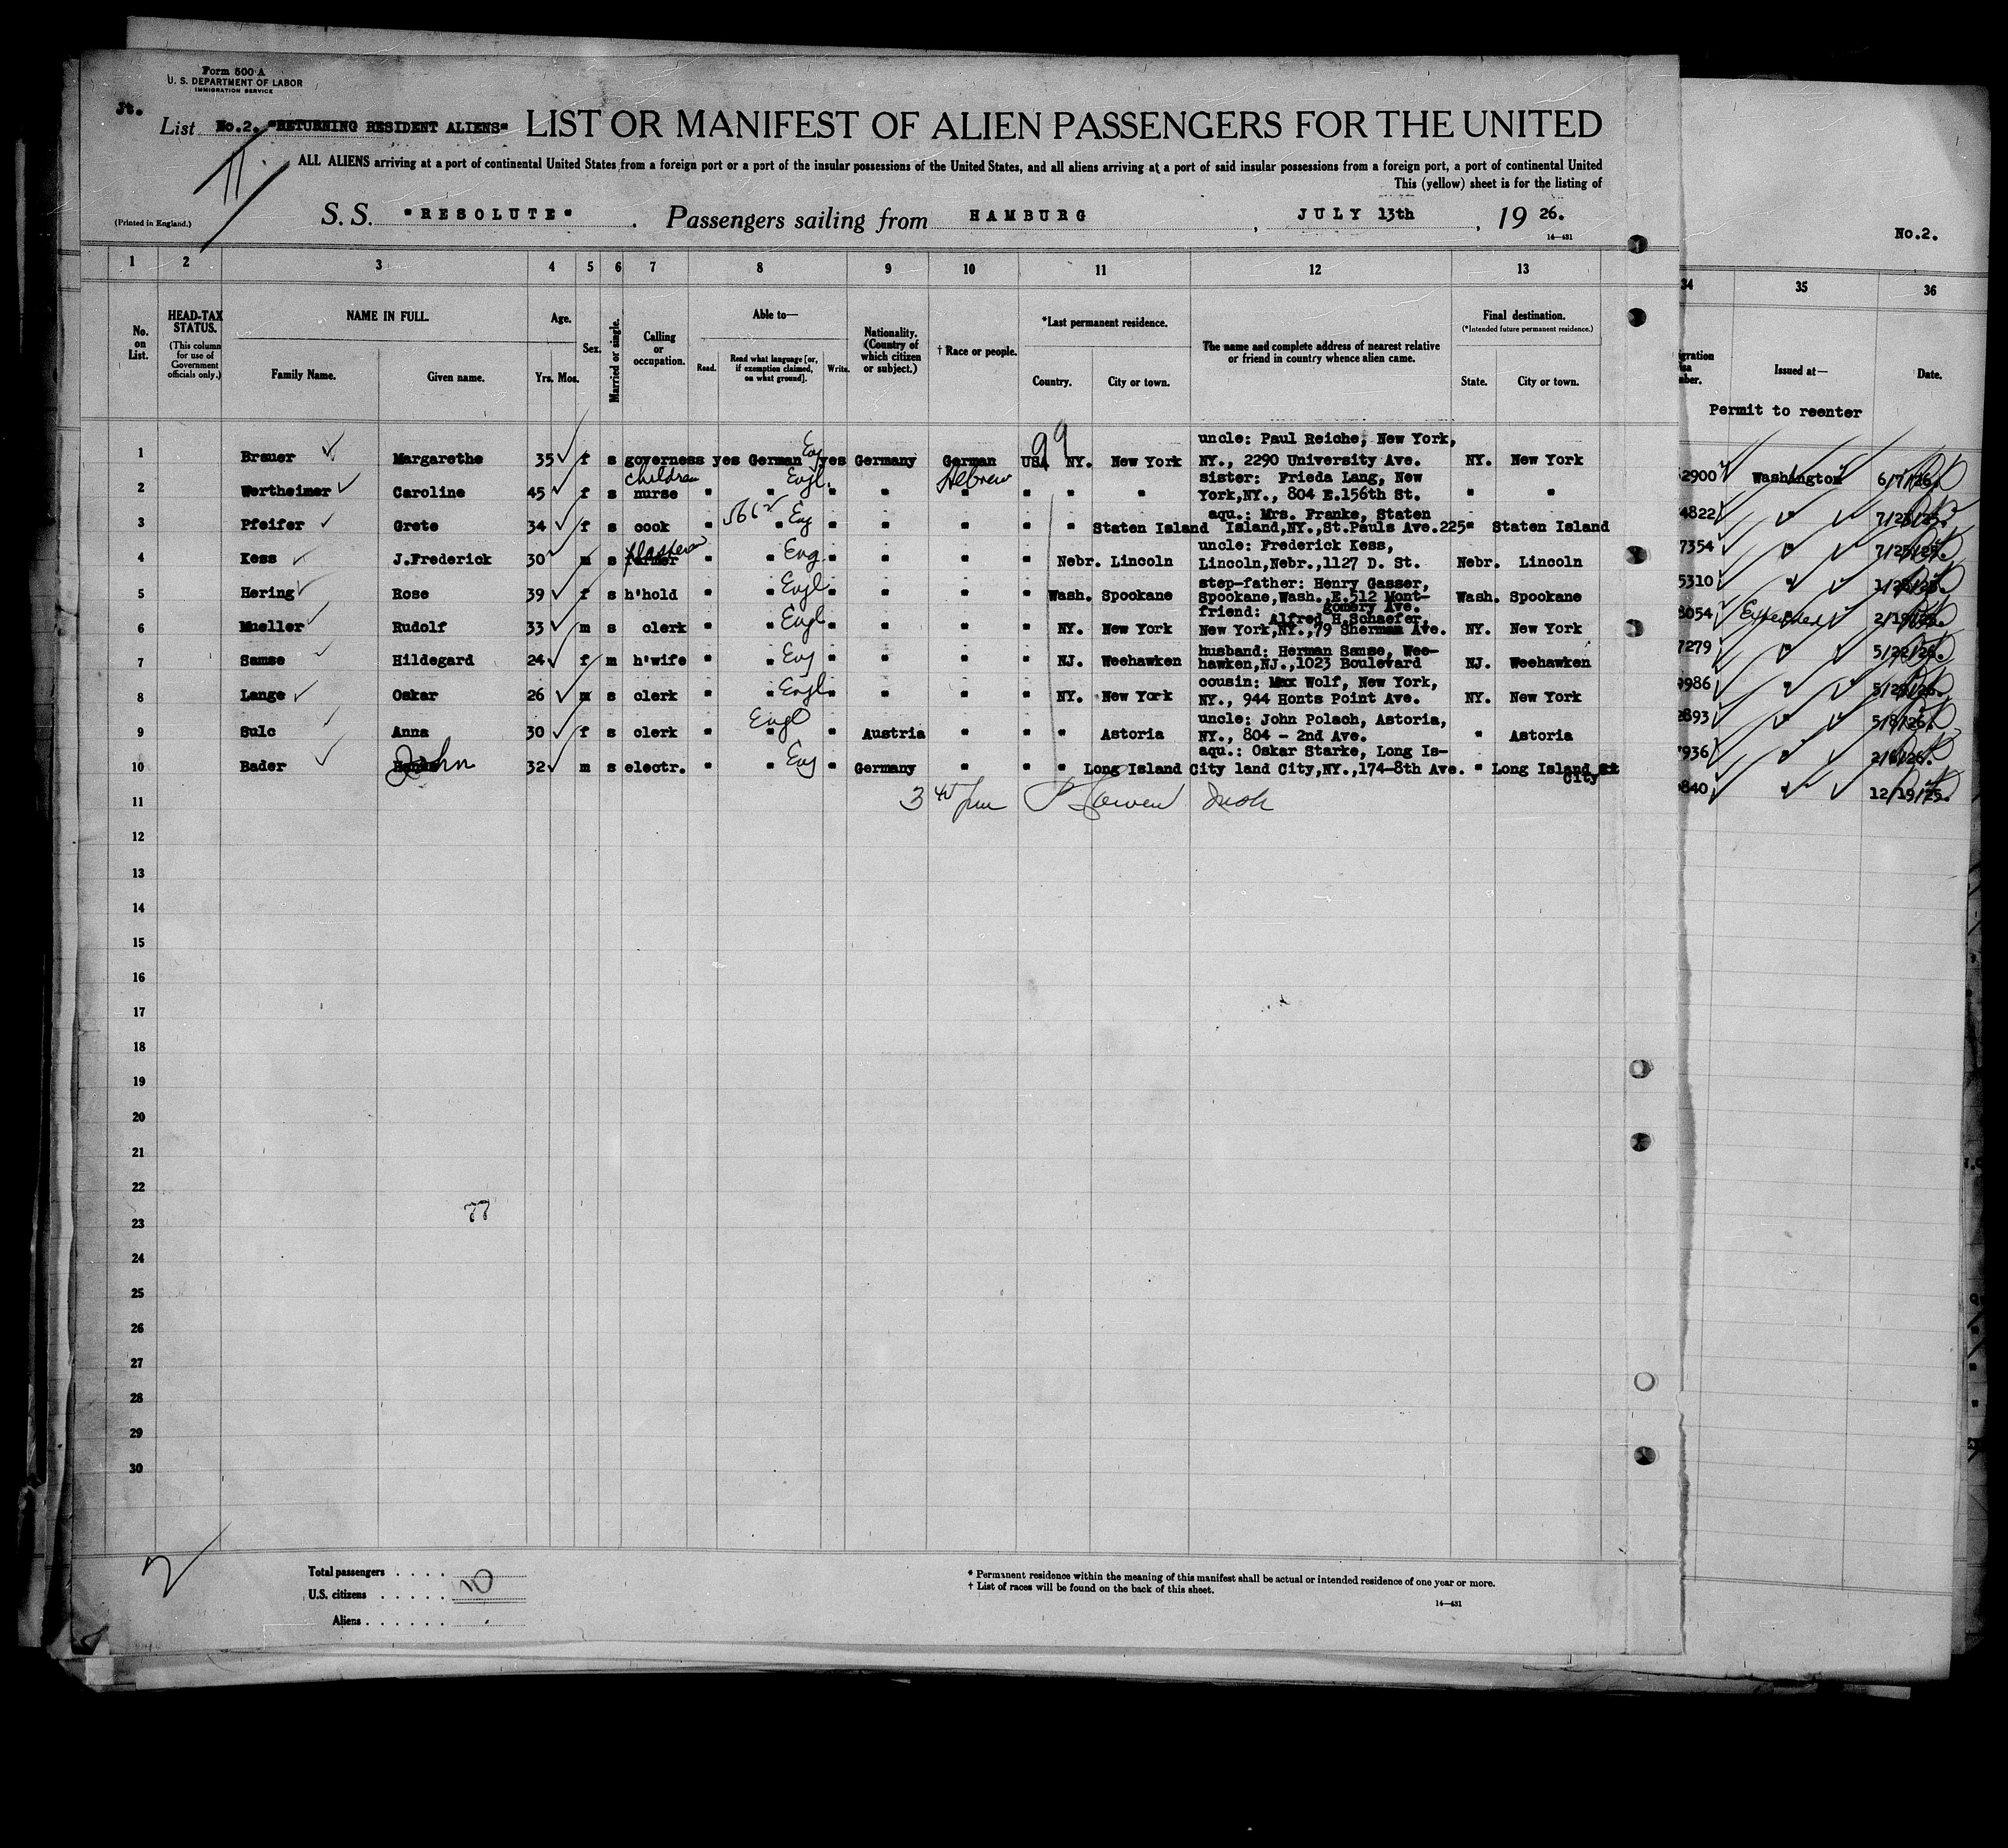 Form 500 A
U. S. DEPARTMENT OF LABOR
IMMIGRATION SERVICE
Jt.
List No.2. "RETURNING RESIDENT ALIENS" LIST OR MANIFEST OF ALIEN PASSENGERS FOR THE UNITED
ALL ALIENS arriving at a port of continental United States from a foreign port or a port of the insular possessions of the United States, and all aliens arriving at a port of said insular possessions from a foreign port, a port of continental United
This (yellow) sheet is for the listing of
(Printed in England.)
S. S. "RESOLUTE". Passengers sailing from HAMBURG, JULY 13th, 19 26.
14—431
No.2.
1 2 3 4 5 6 7 8 9 10 11 12 13 34 35 36
No. on List.
HEAD-TAX STATUS.
(This column for use of Government officials only.)
NAME IN FULL.
Family Name. Given name.
Age.
Yrs. Mos.
Sex.
Married or single.
Calling or occupation.
Able to—
Read. Read what language [or, if exemption claimed, on what ground]. Write.
Nationality. (Country of which citizen or subject.)
† Race or people.
*Last permanent residence.
Country. City or town.
The name and complete address of nearest relative or friend in country whence alien came.
Final destination.
(*Intended future permanent residence.)
State. City or town.
Issued at— Date.
Permit to reenter
uncle: Paul Reiche, New York,
1 Brauer Margarethe 35 f s governess yes German Eng yes Germany German USA NY. New York NY., 2290 University Ave. NY. New York
99
children Engl. Hebrew sister: Frieda Lang, New
2 Wertheimer Caroline 45 f s nurse " " " " " " " " York,NY., 804 E.156th St. " " 2900 Washington 6/7/26.
aqu.: Mrs. Franke, Staten
3 Pfeifer Grete 34 f s cook " " Eng " " " " " Staten Island Island,NY.,St.Pauls Ave.225 " Staten Island 4822 "
uncle: Frederick Kess,
4 Kess J.Frederick 30 m s farmer " " Eng. " " " " Nebr. Lincoln Lincoln,Nebr.,1127 D. St. Nebr. Lincoln 7354 "
step-father: Henry Gasser,
5 Hering Rose 39 f s h'hold " " Engl. " " " " Wash. Spookane Spookane,Wash.,E.512 Mont-
gomery Ave. Wash. Spookane 5310 "
friend: Alfred H.Schaefer,
6 Mueller Rudolf 33 m s clerk " " Engl " " " " NY. New York New York,NY.,79 Sherman Ave. NY. New York 8054
husband: Herman Samse, Wee-
7 Samse Hildegard 24 f m h'wife " " Eng " " " " NJ. Weehawken hawken,NJ.,1023 Boulevard NJ. Weehawken 7279 " 5/22/26.
cousin: Max Wolf, New York,
8 Lange Oskar 26 m s clerk " " Engl " " " " NY. New York NY., 944 Honts Point Ave. NY. New York 9986 "
uncle: John Polach, Astoria,
9 Sulc Anna 30 f s clerk " " Engl " Austria " " " Astoria NY., 804 - 2nd Ave. " Astoria 2893 " 5/8/26.
aqu.: Oskar Starke, Long Is-
10 Bader John 32 m s electr. " " Eng " Germany " " " Long Island City land City,NY.,174-8th Ave. " Long Island City 7936 "
11 9840 " 12/19/25.
12
13
14
15
16
17
18
19
20
21
22
77
23
24
25
26
27
28
29
30
2
Total passengers . . . .
U.S. citizens . . . . . . 10
Aliens . . . . . . .
* Permanent residence within the meaning of this manifest shall be actual or intended residence of one year or more.
† List of races will be found on the back of this sheet.
14—431